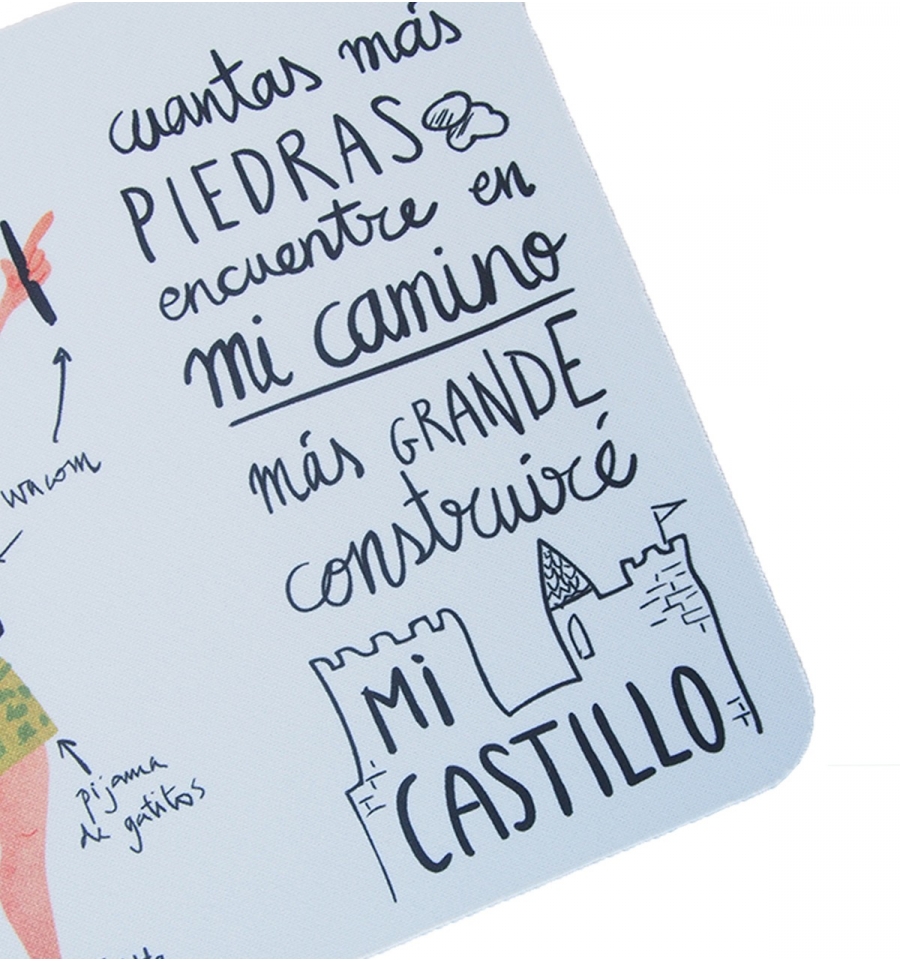 cuantas más
PIEDRAS
encuentre en
mi camino
más GRANDE
construiré
Mi
CASTILLO
wacom
pijama
de gatitos